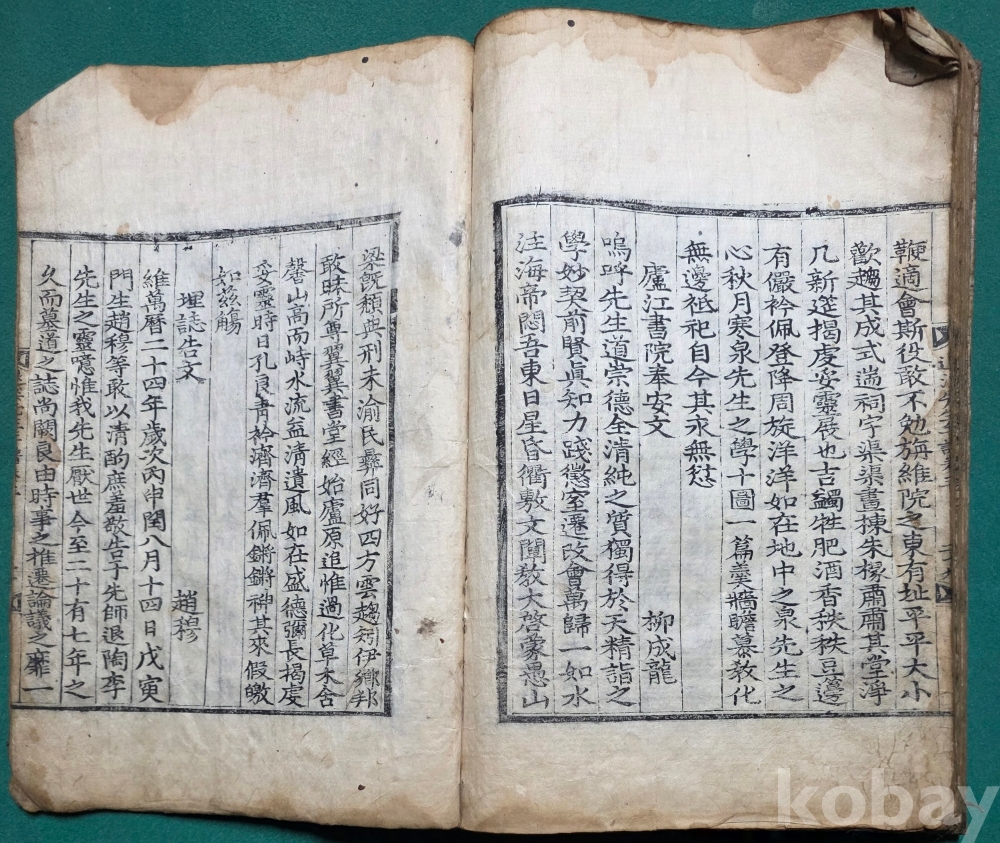 鞭適會斯役敢不勉旃維院之東有址平平大小
歡趨其成式遄祠宇渠渠畫棟朱椽肅肅其堂淨
几新筵揭虔妥靈展也吉蠲牲肥酒香秩秩豆籩
有儼衿佩登降周旋洋洋如在地中之泉先生之
心秋月寒泉先生之學十圖一篇羹牆瞻慕敎化
無邊祗祀自今其永無愆
廬江書院奉安文 柳成龍
嗚呼先生道崇德全淸純之質獨得於天精詣之
學妙契前賢眞知力踐懲窒遷改會萬歸一如水
注海帝悶吾東日星昏衢敷文闡敎大啓蒙愚山
梁旣頹典刑未渝民彝同好四方雲趨矧伊鄕邦
敢昧所尊翼翼書堂經始廬原追惟過化草木含
馨山高而峙水流益淸遺風如在盛德彌長揭虔
妥靈時日孔良靑衿濟濟羣佩鏘鏘神其來假歆
如玆觴
埋誌告文 趙穆
維萬曆二十四年歲次丙申閏八月十四日戊寅
門生趙穆等敢以淸酌庶羞敬告于先師退陶李
先生之靈噫惟我先生厭世今至二十有七年之
久而墓道之誌尙闕良由時事之推遷論議之靡一
kobay